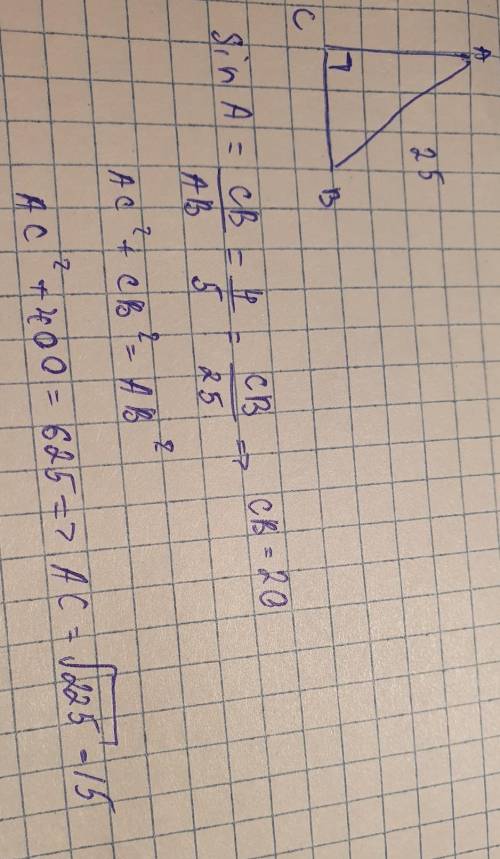 A
C
B
25
Sin A = CB/AB = 4/5 = CB/25 => CB = 20
AC² + CB² = AB²
AC² + 400 = 625 => AC = √225 = 15